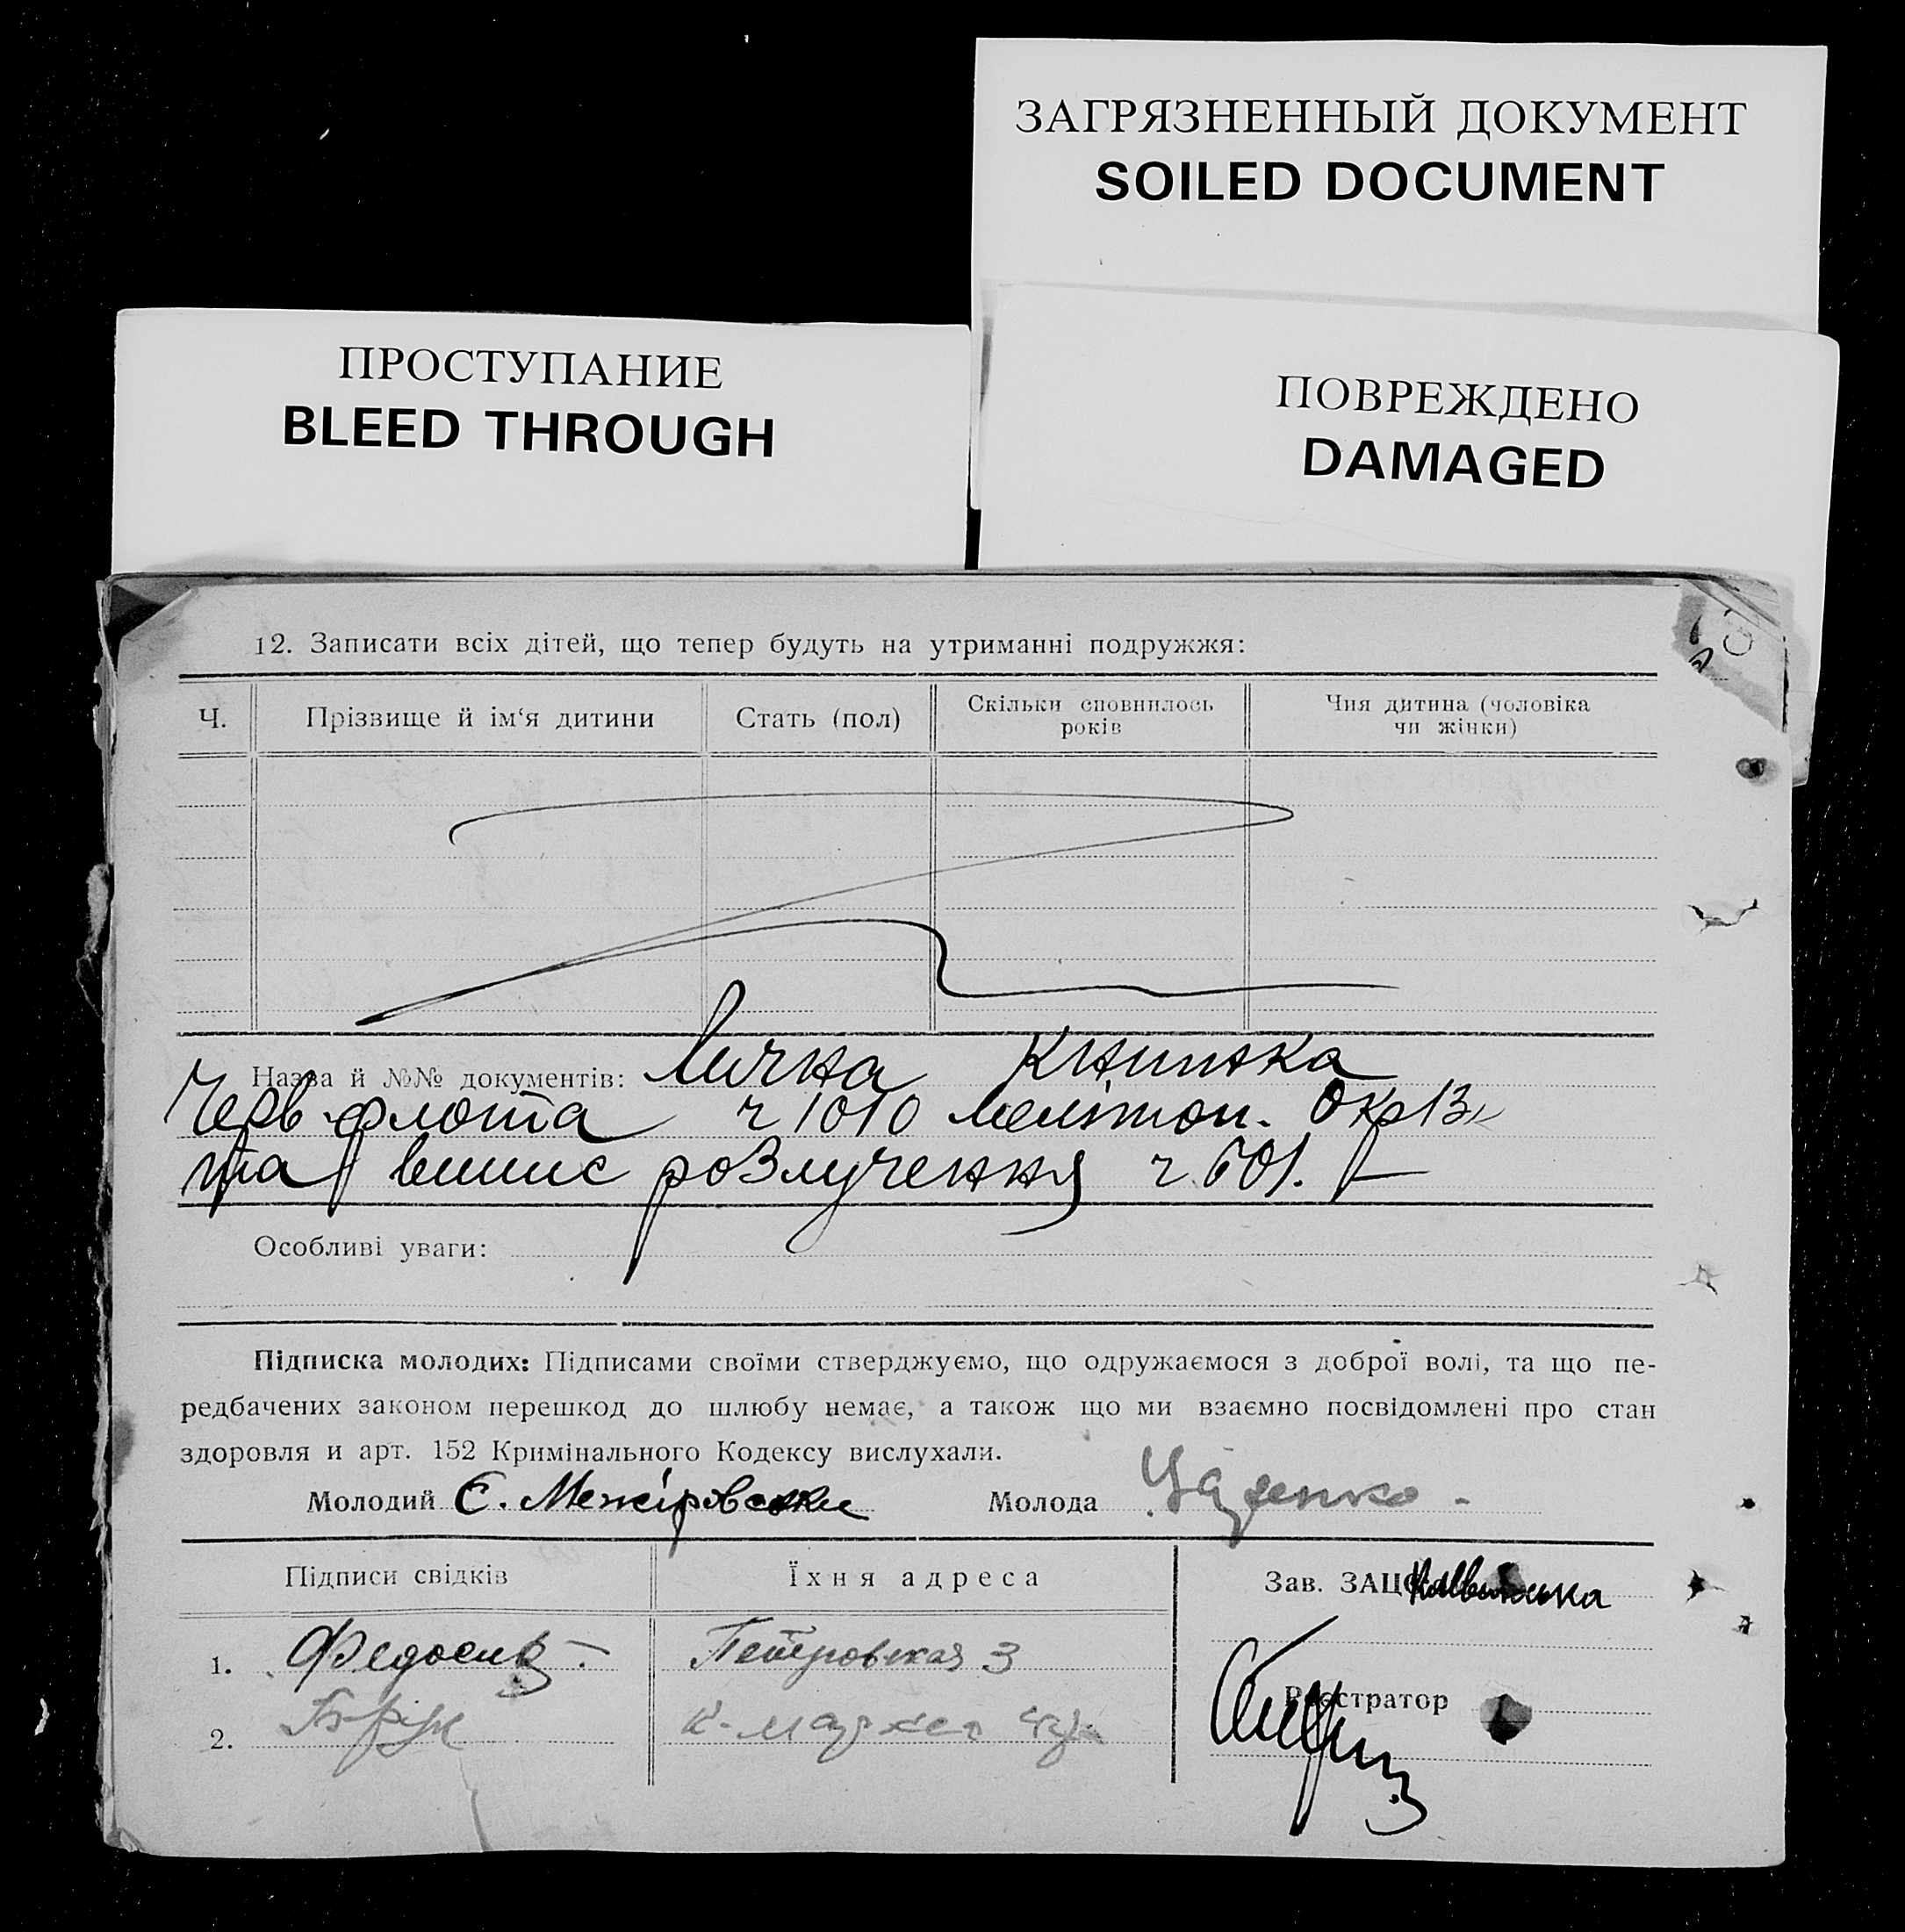 ЗАГРЯЗНЕННЫЙ ДОКУМЕНТ
SOILED DOCUMENT
ПРОСТУПАНИЕ
BLEED THROUGH
ПОВРЕЖДЕНО
DAMAGED
12. Записати всіх дітей, що тепер будуть на утриманні подружжя:
Ч. Прізвище й ім‘я дитини Стать (пол) Скільки сповнилось років Чия дитина (чоловіка чи жінки)
Назва й №№ документів: Лична Книжка
Черв флота ч 1010 Меліто
та випис розлучення ч 601.
Особливі уваги:
Підписка молодих: Підписами своїми стверджуємо, що одружаємося з доброї волі, та що пе-
редбачених законом перешкод до шлюбу немає, а також що ми взаємно посвідомлені про стан
здоровля и арт. 152 Кримінального Кодексу вислухали.
Молодий Є. Межіровски Молода
Підписи свідків Їхня адреса Зав. ЗАЦС
1. Петровская 3
Реєстратор
2. К. маркса